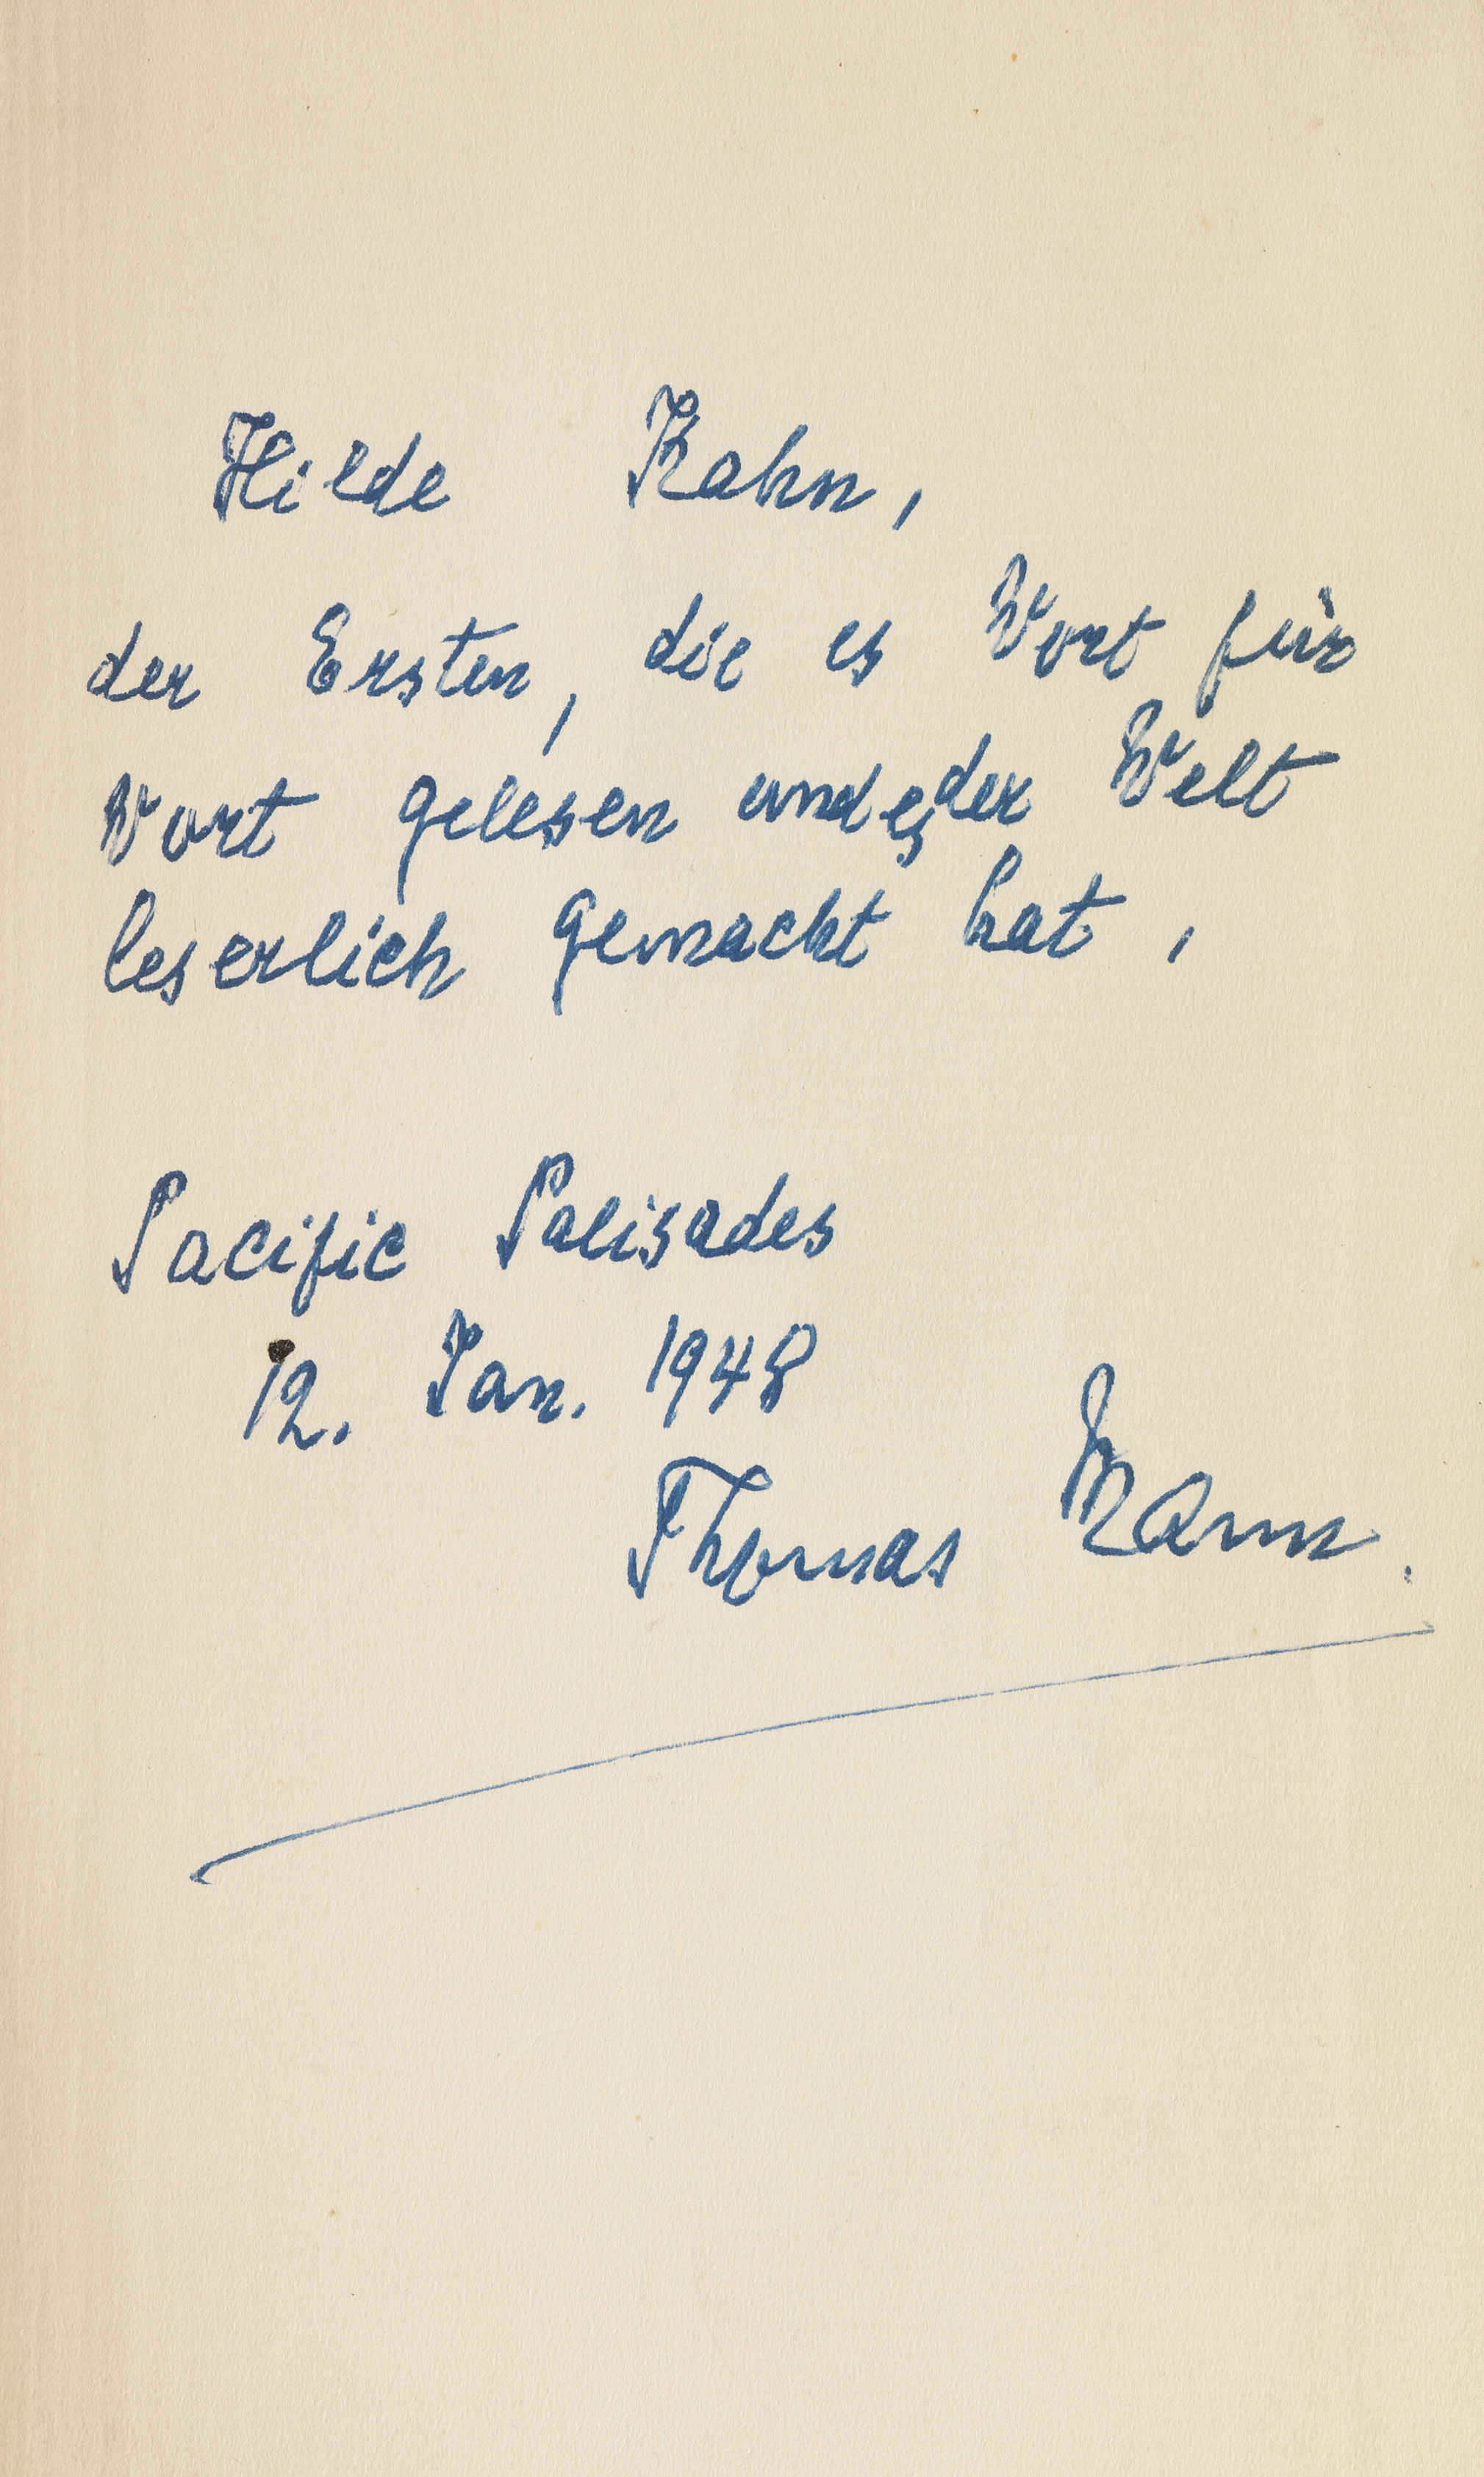 Hilde Kahn,
der Ersten, die es Wort für
Wort gelesen und es der Welt
leserlich gemacht hat,
Pacific Palisades
12. Jan. 1948
Thomas Mann.